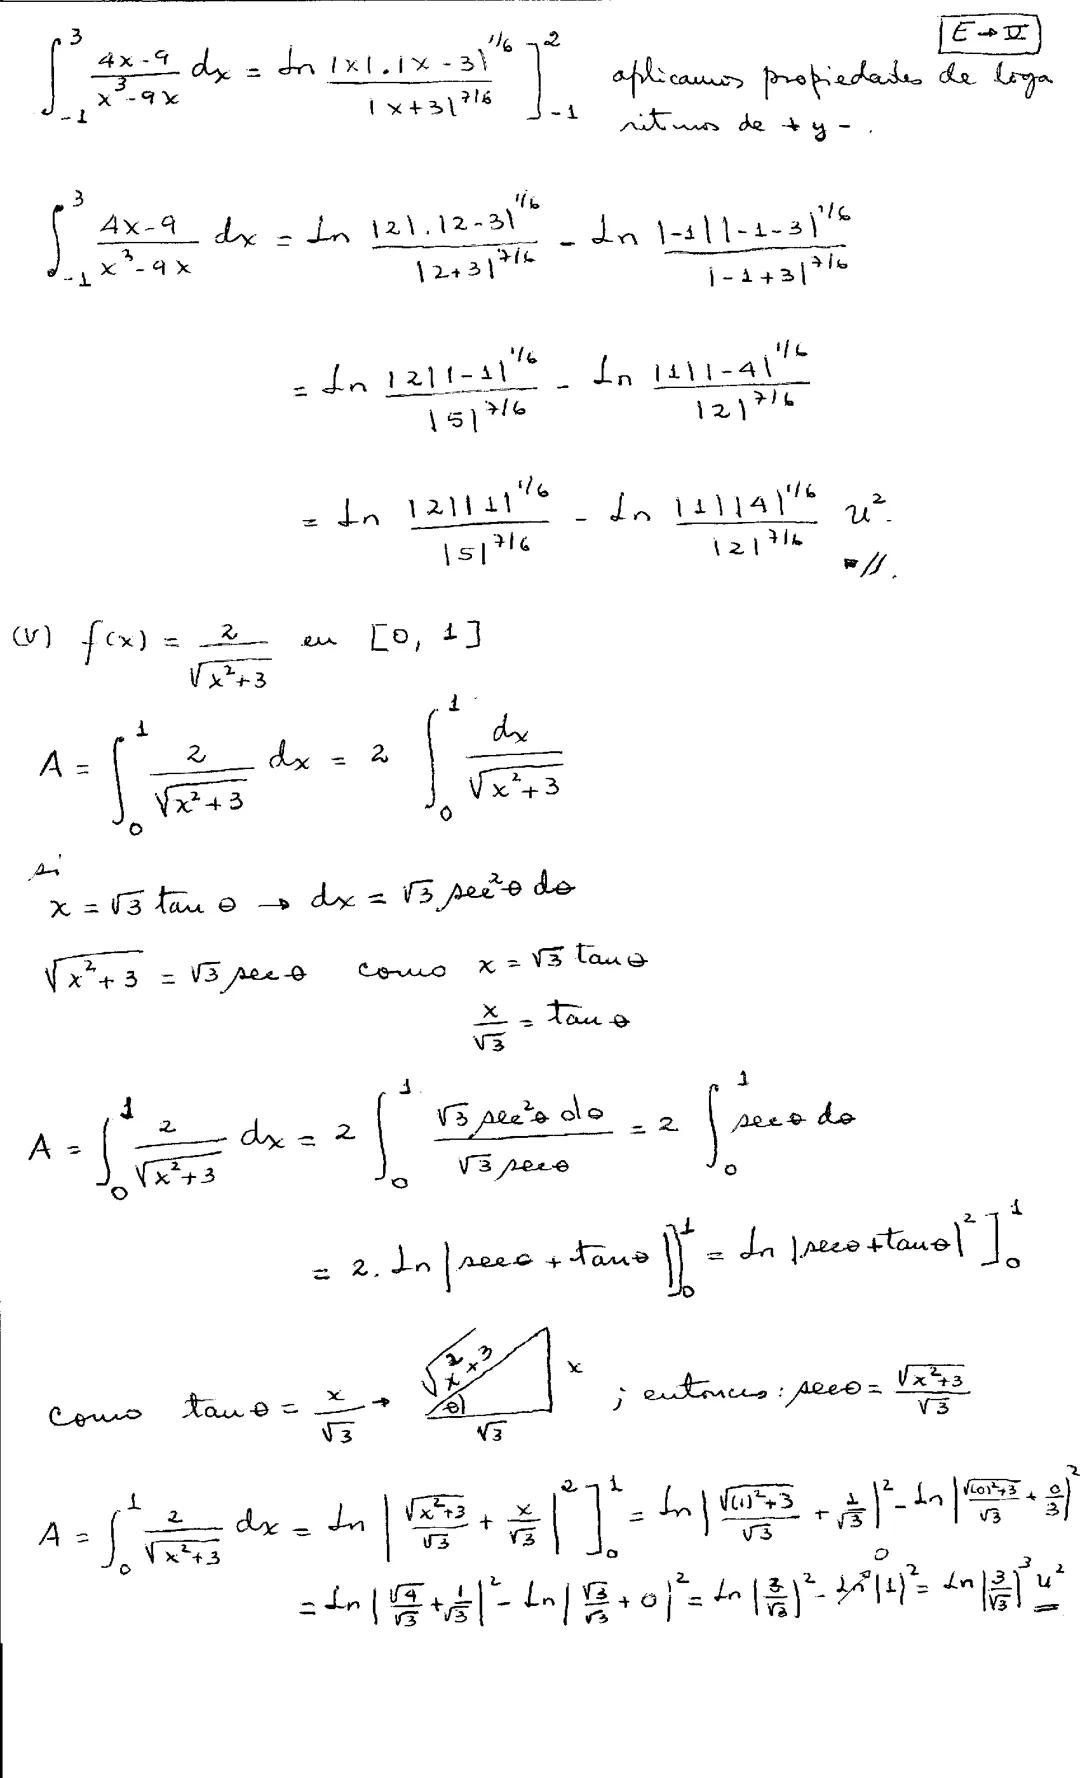 E → V
∫_{-1}^{3} (4x-9)/(x³-9x) dx = Ln (|x|.|x-3|^{1/6})/(|x+3|^{7/6}) ]_{-1}^{2} aplicamos propiedades de loga
ritmos de + y - .
∫_{-1}^{3} (4x-9)/(x³-9x) dx = Ln (|2|.|2-3|^{1/6})/(|2+3|^{7/6}) - Ln (|-1||-1-3|^{1/6})/(|-1+3|^{7/6})
= Ln (|2||-1|^{1/6})/(|5|^{7/6}) - Ln (|1||-4|^{1/6})/(|2|^{7/6})
= Ln (|2||1|^{1/6})/(|5|^{7/6}) - Ln (|1||4|^{1/6})/(|2|^{7/6}) u².
(V) f(x) = 2/√(x²+3) en [0, 1]
A = ∫_{0}^{1} 2/√(x²+3) dx = 2 ∫_{0}^{1} dx/√(x²+3)
si
x = √3 tan θ → dx = √3 sec²θ dθ
√(x²+3) = √3 sec θ como x = √3 tan θ
x/√3 = tan θ
A = ∫_{0}^{1} 2/√(x²+3) dx = 2 ∫_{0}^{1} (√3 sec²θ dθ)/(√3 secθ) = 2 ∫_{0}^{1} secθ dθ
= 2. Ln |secθ + tanθ| ]_{0}^{1} = Ln |secθ+tanθ|² ]_{0}^{1}
como tan θ = x/√3 → √(x²+3) θ √3 x ; entonces: secθ = √(x²+3)/√3
A = ∫_{0}^{1} 2/√(x²+3) dx = Ln | √(x²+3)/√3 + x/√3 |² ]_{0}^{1} = Ln | √((1)²+3)/√3 + 1/√3 |² - Ln | √((0)²+3)/√3 + 0/3 |²
= Ln | √4/√3 + 1/√3 |² - Ln | √3/√3 + 0 |² = Ln | 3/√3 |² - Ln |1|² 0 = Ln | 3/√3 |³ u²